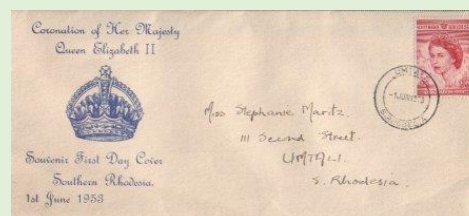 Coronation of Her Majesty
Queen Elizabeth II
Souvenir First Day Cover
Southern Rhodesia.
1st June 1953
Miss Stephanie Maritz.
111 Second Street.
UMTALI.
S. Rhodesia.